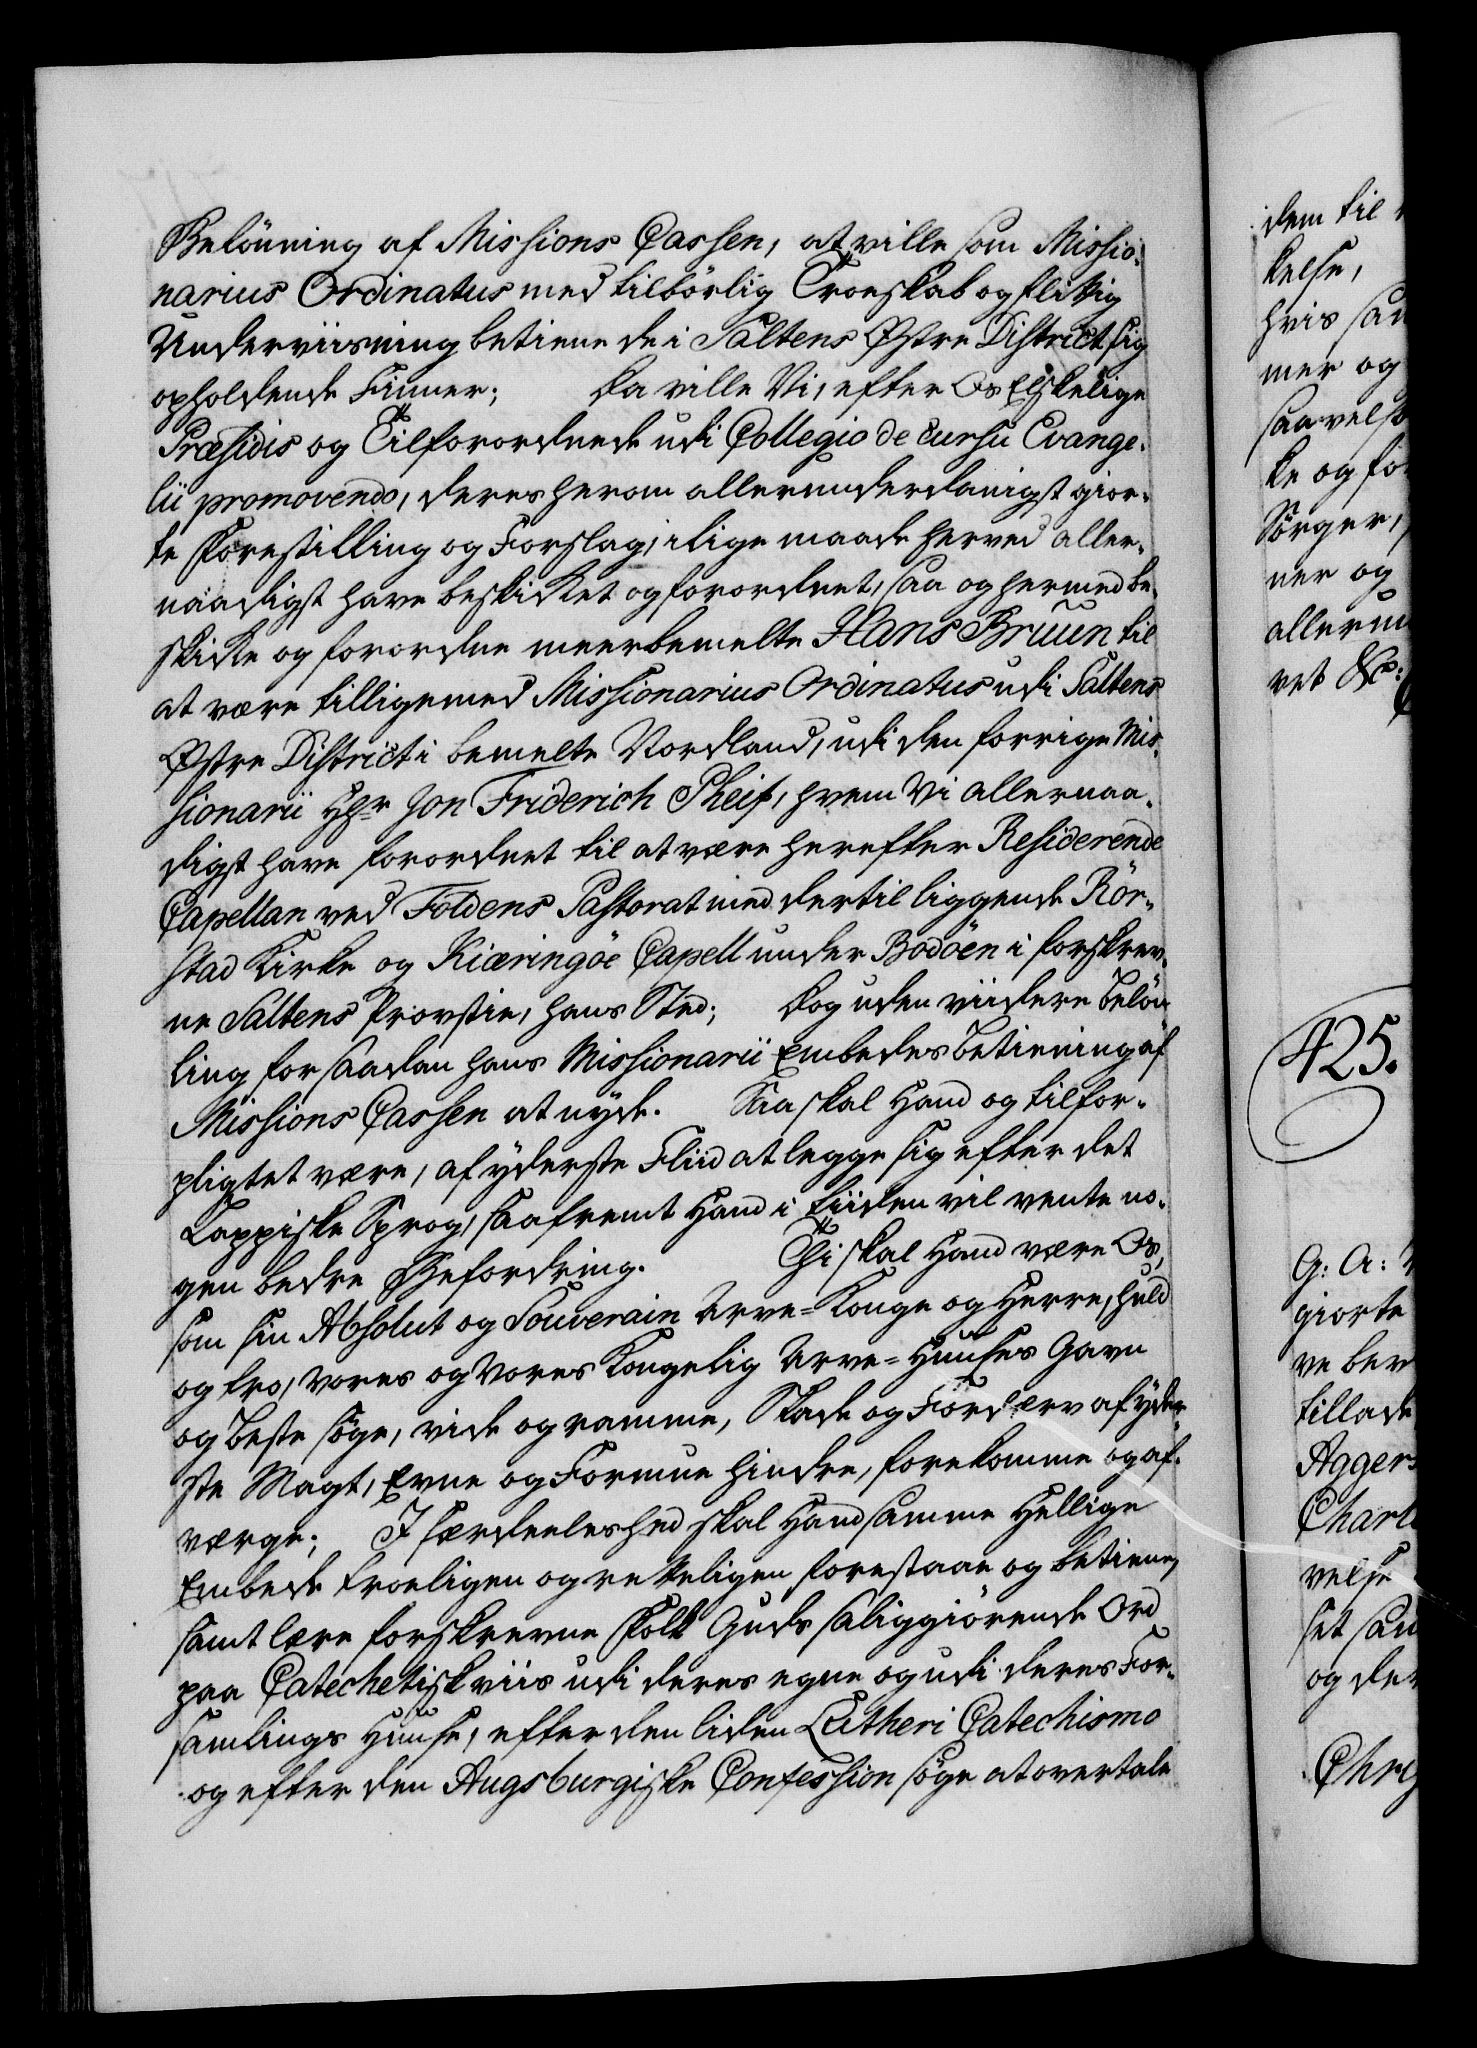 Belönning af Missions Cassen, at ville som Missio-
narius Ordinatus med tilbörlig Troeskab og flittig
Underviisning betiene de i Saltens Østre District sig
opholdende Finner; Da ville Vi, efter Os Elskelige
Præsidis og Tilforordnede udi Collegio de cursu Evange-
lii promovendo, deres herom allerunderdanigst gior-
te Forestilling og Forslag, i lige maade herved aller-
naadigst have beskikket og forordnet, saa og hermed be-
skikke og forordne meerbemelte Hans Bruun til
at være tilligemed Missionarius Ordinatus udi Saltens
Østre District i bemelte Nordland, udi den forrige Mis-
sionarii Hr Jon Friderich Pheif, hvem Vi allernaa-
digst have forordnet til at være herefter Residerende
Capellan ved Foldens Pastorat med dertil liggende Rör-
stad Kirke og Kiæringöe Capell under Bodöen i forskrev-
ne Saltens Provstie, hans Sted; Dog uden viidere belön-
ling for saadan hans Missionarii Embedes betiening af
Missions Cassen at nyde. Saa skal Hand og tilfor-
pligtet være, af yderste Fliid at legge sig efter det
Lappiske Sprog, saafremt Hand i tiiden vil vente no-
gen bedre Befordring. Thi skal Hand være Os,
som sin Absolut og Souverain Arve-Konge og Herre, huld
og tro, vores og vores Kongelig Arve-Huuses Gavn
og beste söge, vide og ramme, Skade og Fordærv af yder-
ste Magt, Evne og Formue hindre, forekomme og af-
værge; I særdeeleshed skal Hand samme Hellige
Embede troeligen og retteligen forestaae og betiene,
samt lære forskrevne Folk Guds saliggiörende Ord
paa Catechetisk viis udi deres egne og udi deres For-
samlings Huuse, efter den liden Lutheri Catechismo
og efter den Augsburgiske Confession söge at overtale
dem til
kelse,
hvis saa
mer og
saavels
ke og for
Sörger,
ner og
allerun
vet &c:
425.
G: A:
giorte
ve ber
tillade
Aggers
Charl
velse
set san
og der
Chri